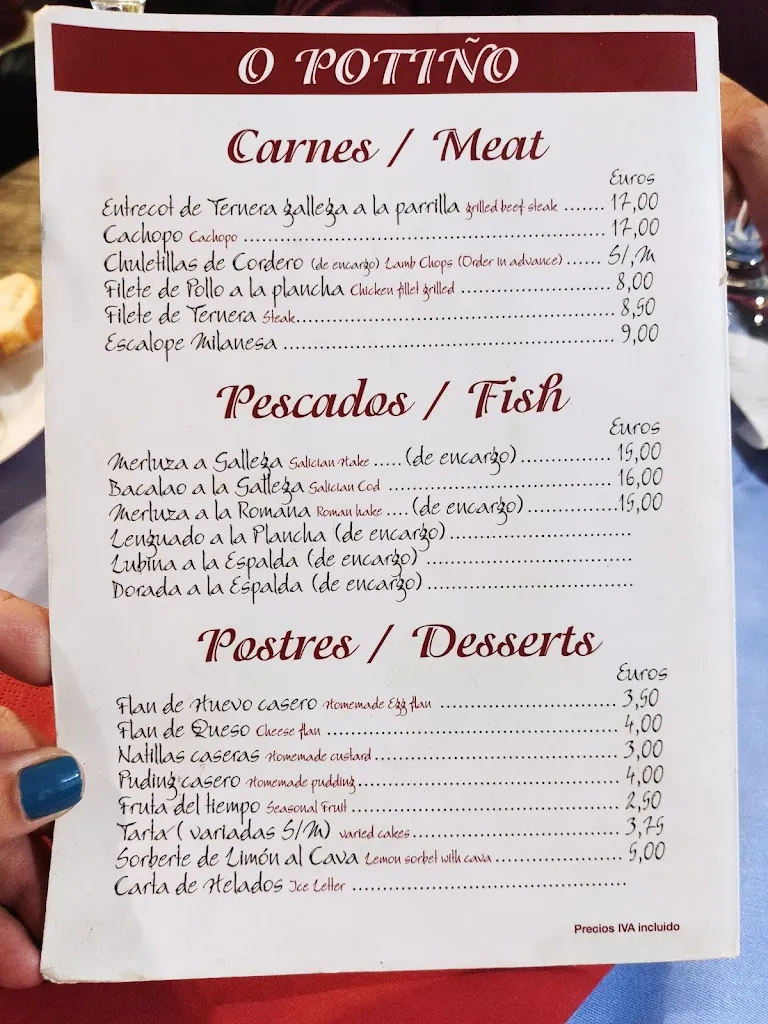 O POTIÑO
Carnes / Meat
Euros
Entrecot de Ternera gallega a la parrilla grilled beef steak ....... 17,00
Cachopo Cachopo ........ 17,00
Chuletillas de Cordero (de encargo) Lamb Chops (Order in advance) ...... S/.M
Filete de Pollo a la plancha Chicken fillet grilled ........ 8,00
Filete de Ternera Steak........ 8,50
Escalope Milanesa ........ 9,00
Pescados / Fish
Euros
Merluza a Gallega Galician Hake .....(de encargo)........ 15,00
Bacalao a la Gallega Galician Cod ........ 16,00
Merluza a la Romana Roman hake ....(de encargo)........15,00
Lenguado a la Plancha (de encargo)........
Lubina a la Espalda (de encargo) ........
Dorada a la Espalda (de encargo)........
Postres / Desserts
Euros
Flan de Huevo casero Homemade Egg flan ........ 3,50
Flan de Queso Cheese flan ........ 4,00
Natillas caseras Homemade custard........ 3,00
Puding casero Homemade pudding........ 4,00
Fruta del tiempo Seasonal Fruit ........ 2,50
Tarta ( variadas S/M) varied cakes........ 3,75
Sorberte de Limón al Cava Lemon sorbet with cava ........ 5,00
Carta de Helados Ice Letter ........
Precios IVA incluido